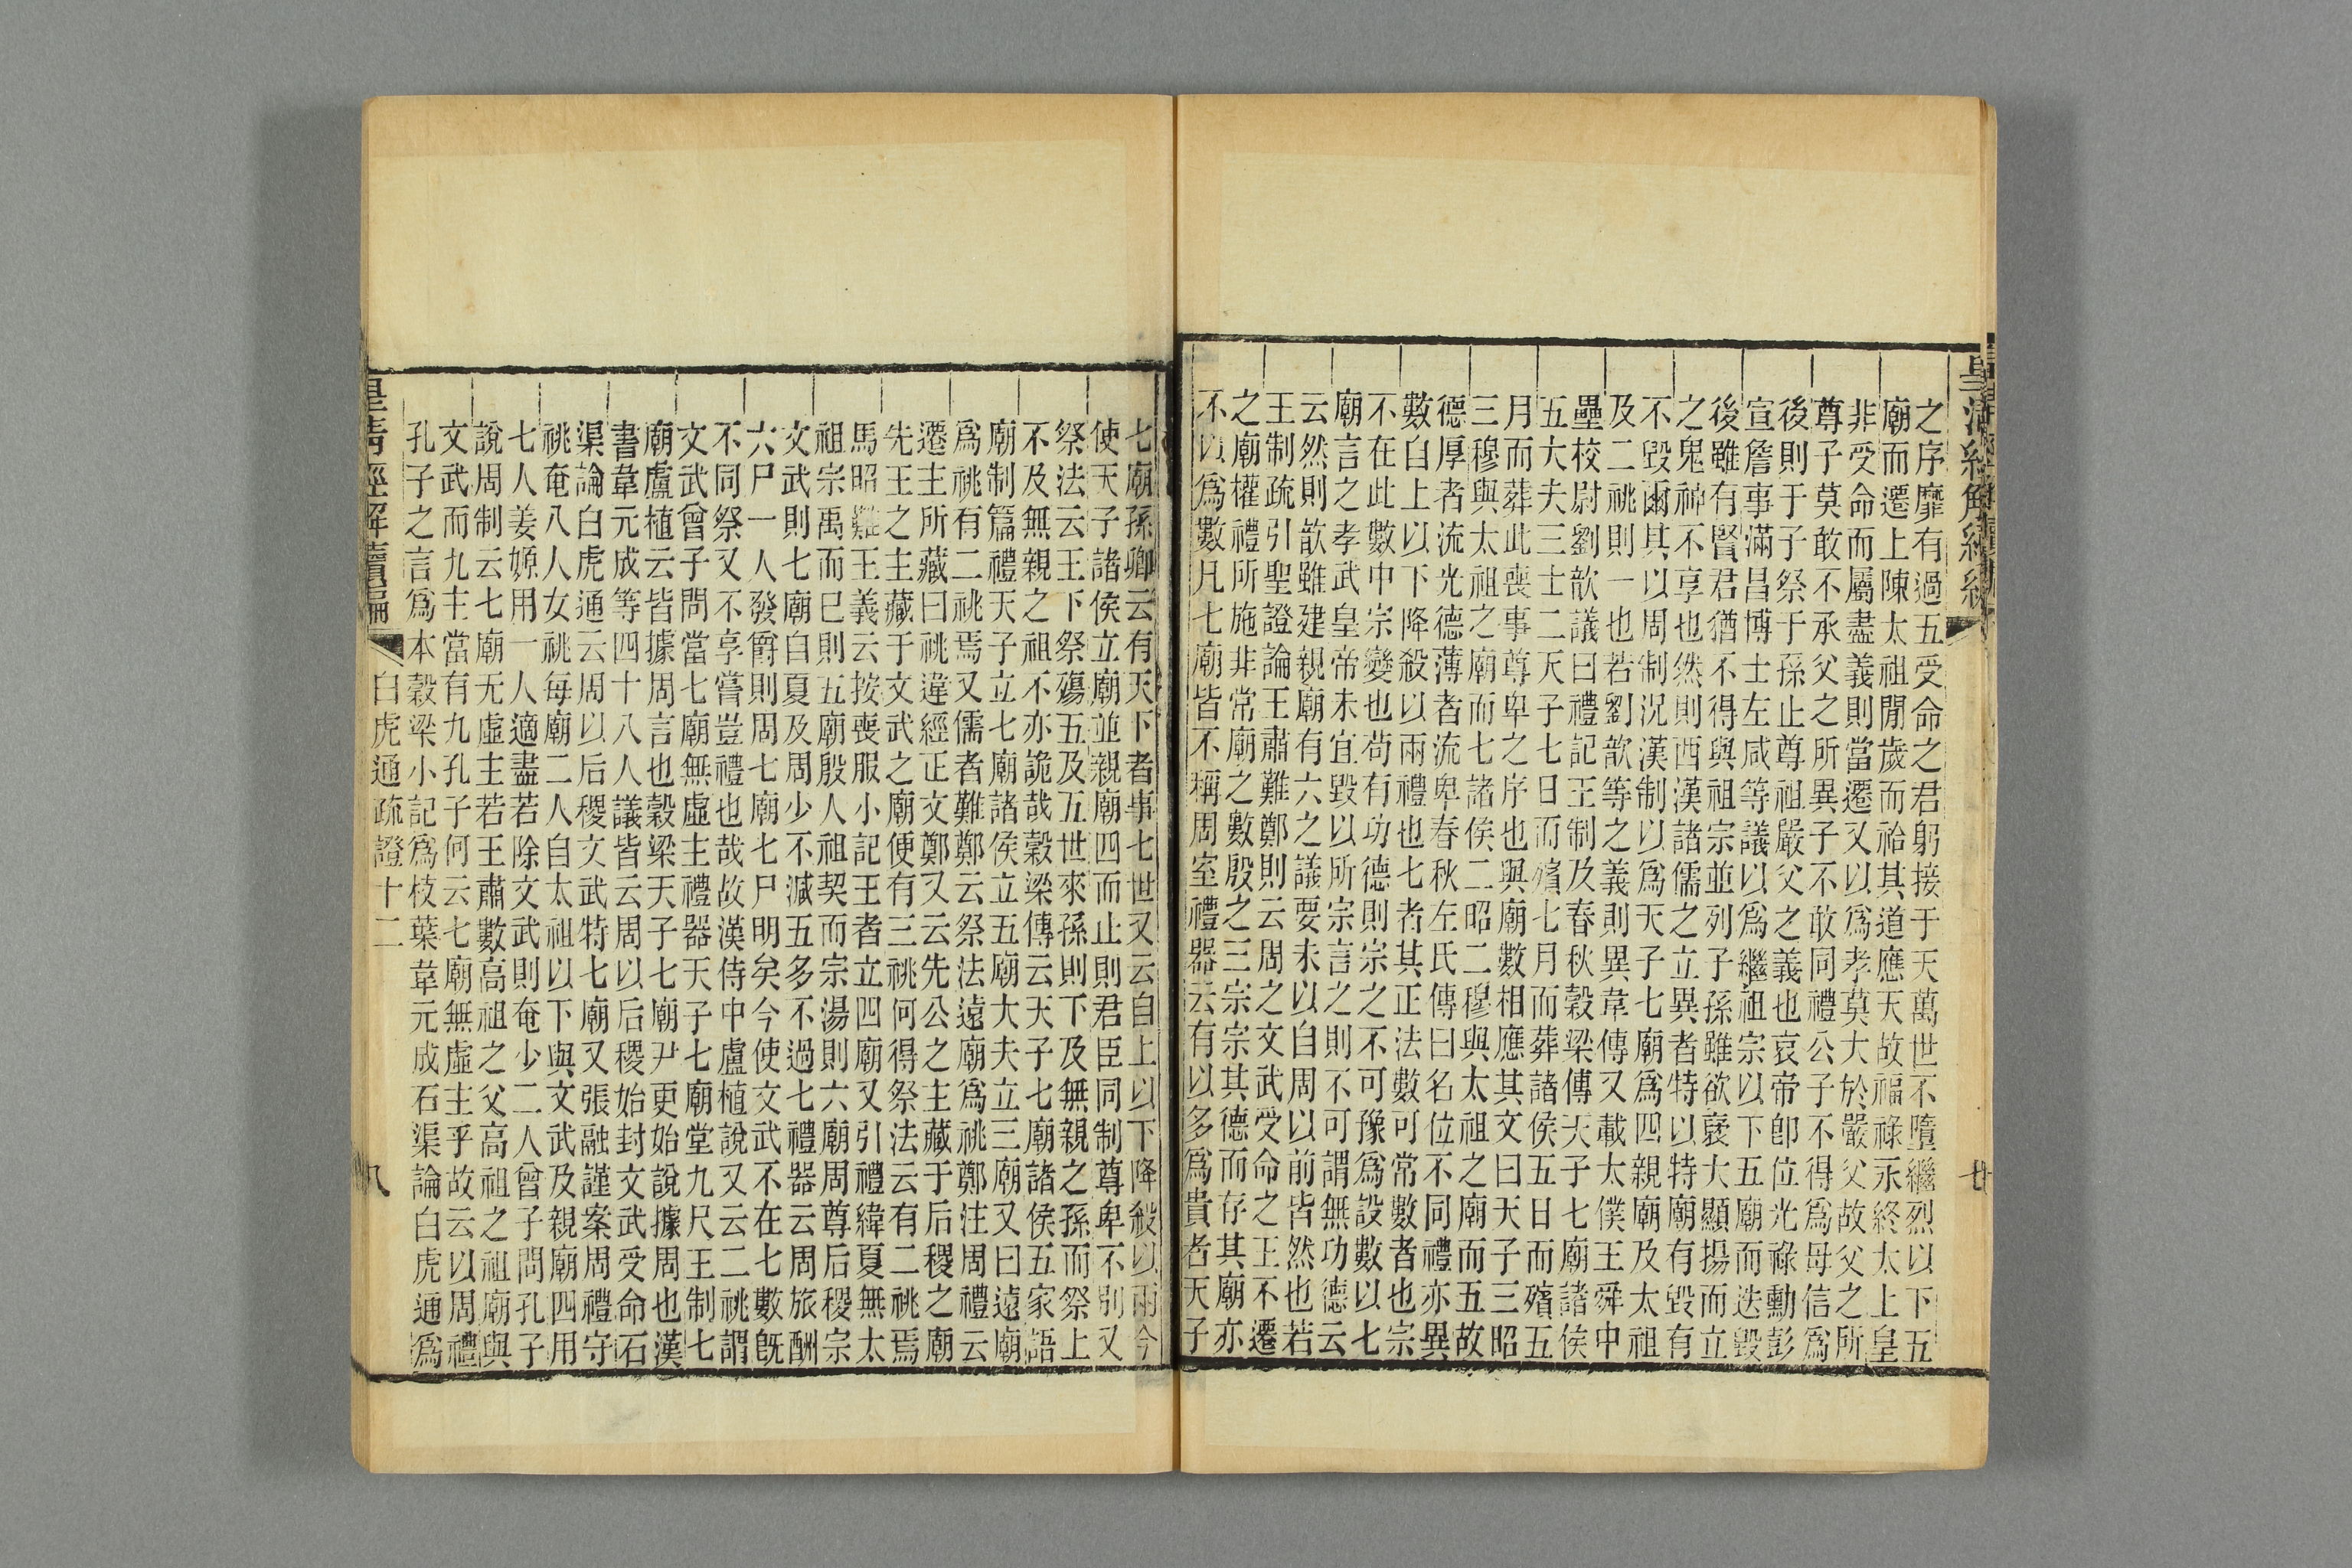 皇清經解續編
七
之序靡有過五受命之君躬接于天萬世不墮繼烈以下五
廟而遷上陳太祖閒歲而祫其道應天故福祿永終太上皇
非受命而屬盡義則當遷又以爲孝莫大於嚴父故父之所
尊子莫敢不承父之所異子不敢同禮公子不得爲母信爲
後則于子祭于孫止尊祖嚴父之義也哀帝卽位光祿勳彭
宣詹事滿昌博士左咸等議以爲繼祖宗以下五廟而迭毀
後雖有賢君猶不得與祖宗並列子孫雖欲襃大顯揚而立
之鬼神不享也然則西漢諸儒之立異者特以特廟有毀有
不毀爾其以周制況漢制以爲天子七廟爲四親廟及太祖
及二祧則一也若劉歆等之義則異韋傳又載太僕王舜中
壘校尉劉歆議曰禮記王制及春秋穀梁傳天子七廟諸侯
五大夫三士二天子七日而殯七月而葬諸侯五日而殯五
月而葬此喪事尊卑之序也與廟數相應其文曰天子三昭
三穆與太祖之廟而七諸侯二昭二穆與太祖之廟而五故
德厚者流光德薄者流卑春秋左氏傳曰名位不同禮亦異
數自上以下降殺以兩禮也七者其正法數可常數者也宗
不在此數中宗變也苟有功德則宗之不可豫爲設數以七
廟言之孝武皇帝未宜毀以所宗言之則不可謂無功德云
云然則歆雖建親廟有六之議要未以自周以前皆然也若
王制疏引聖證論王肅難鄭則云周之文武受命之王不遷
之廟權禮所施非常廟之數殷之三宗宗其德而存其廟亦
不以爲數凡七廟皆不稱周室禮器云有以多爲貴者天子
七廟孫卿云有天下者事七世又云自上以下降殺以兩今
使天子諸侯立廟並親廟四而止則君臣同制尊卑不別又
祭法云王下祭殤五及五世來孫則下及無親之孫而祭上
不及無親之祖不亦詭哉穀梁傳云天子七廟諸侯五家語
廟制篇禮天子立七廟諸侯立五廟大夫立三廟又曰遠廟
爲祧有二祧焉又儒者難鄭云祭法遠廟爲祧鄭注周禮云
遷主所藏曰祧違經正文鄭又云先公之主藏于后稷之廟
先王之主藏于文武之廟便有三祧何得祭法云有二祧焉
馬昭難王義云按喪服小記王者立四廟又引禮緯夏無太
祖宗禹而已則五廟殷人祖契而宗湯則六廟周尊后稷宗
文武則七廟自夏及周少不減五多不過七禮器云周旅酬
六尸一人發爵則周七廟七尸明矣今使文武不在七數旣
不同祭又不享嘗豈禮也哉故漢侍中盧植說又云二祧謂
文武曾子問當七廟無虛主禮器天子七廟堂九尺王制七
廟盧植云皆據周言也穀梁天子七廟尹更始說據周也漢
書韋元成等四十八人議皆云周以后稷始封文武受命石
渠論白虎通云周以后稷文武特七廟又張融謹案周禮守
祧奄八人女祧每廟二人自太祖以下與文武及親廟四用
七人姜嫄用一人適盡若除文武則奄少二人曾子問孔子
說周制云七廟无虛主若王肅數高祖之父高祖之祖廟與
文武而九主當有九孔子何云七廟無虛主乎故云以周禮
孔子之言爲本穀梁小記爲枝葉韋元成石渠論白虎通爲
皇清經解續編
白虎通疏證十二
八